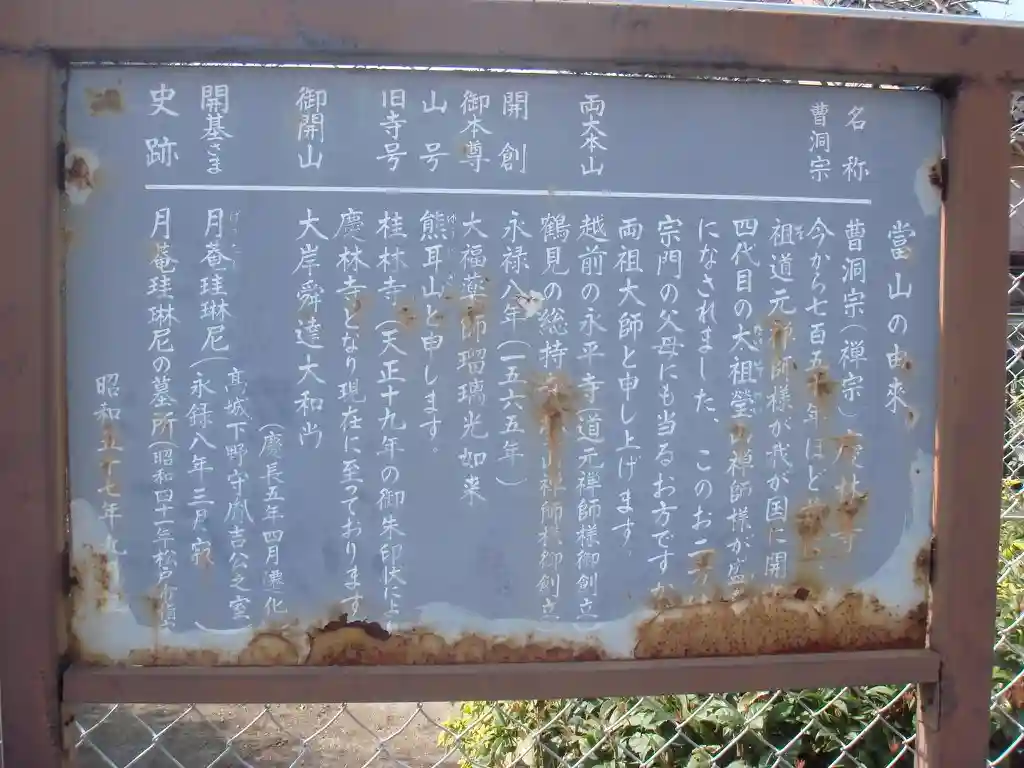 當山の由来
名称
曹洞宗(禅宗)慶林寺
曹洞宗
今から七百五十年ほど
祖道元禅師様が我が国に開
四代目の太祖瑩山禅師様が盛
になされました、このお二方
宗門の父母にも当るお方ですか
両祖大師と申し上げます
両大本山
越前の永平寺(道元禅師様御創立
鶴見の総持寺 山禅師様御創立
開創
永禄八年(一五六五年)
御本尊
大福薬師瑠璃光如来
山号
熊耳山と申します。
旧寺号
桂林寺(天正十九年の御朱印状によ
慶林寺となり現在に至っております
御開山
大岸舜達大和尚
(慶長五年四月遷化
開基さま
月菴珪琳尼
高城下野守胤吉公之室
(永録八年三月 寂 )
史跡
月菴珪琳尼の墓所(昭和四十一年松戸市
昭和五十七年九